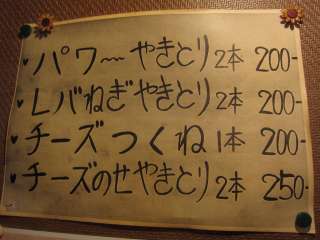 ♥パワ〜やきとり2本 200-
♥レバねぎやきとり2本 200-
♥チーズつくね1本 200-
♥チーズのせやきとり2本 250-